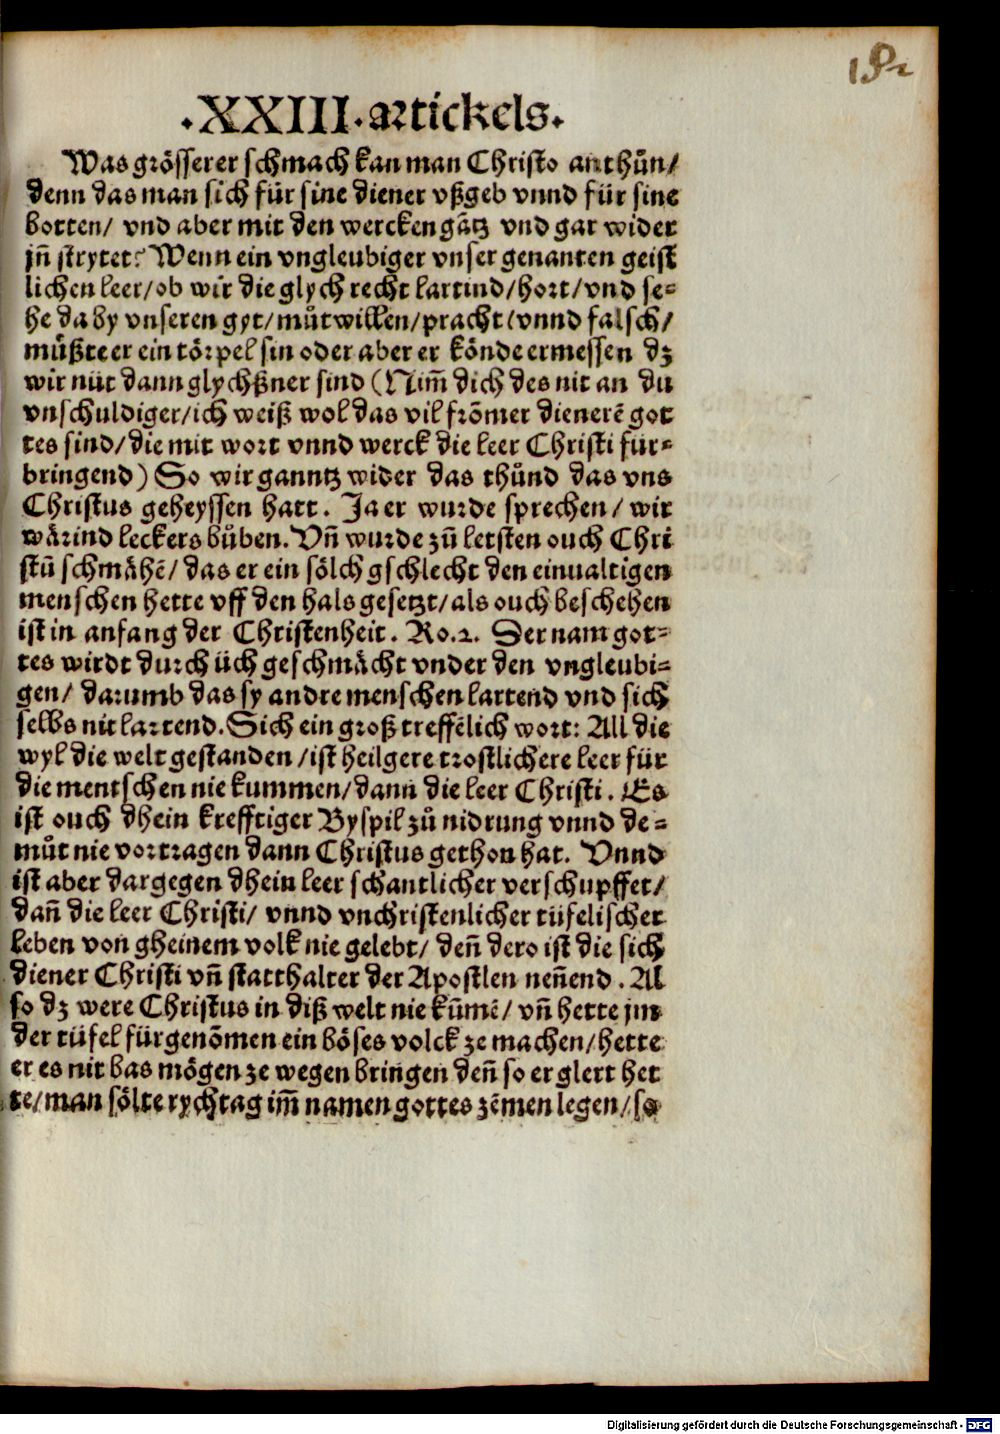 182
.XXIII. artickels.
Was grösserer schmach kan man Christo anthůn/
denn das man sich für sine diener vßgeb vnnd für sine
botten/ vnd aber mit den wercken gātz vnd gar wider
jñ strytet? Wenn ein vngleubiger vnser genanten geist
lichen leer/ob wir die glych recht lartind/hort/vnd se⸗
he da by vnseren gyt/můtwillen/pracht/vnnd falsch/
můßte er ein törpel sin oder aber er könde ermessen dz
wir nüt dann glychßner sind (Nim̄ dich des nit an du
vnschuldiger/ich weiß wol das vil frōmer dienerē got
tes sind/die mit wort vnnd werck die leer Christi für⸗
bringend) So wir ganntz wider das thůnd das vns
Christus geheyssen hatt. Ja er wurde sprechen/ wir
wärind leckers bůben. Vñ wurde zů letsten ouch Chri
stū schmähē/ das er ein sölch gschlecht den einualtigen
menschen hette vff den hals gesetzt/als ouch beschehen
ist in anfang der Christenheit. Ro.2. Der nam got⸗
tes wirdt durch üch geschmächt vnder den vngleubi⸗
gen/ darumb das sy andre menschen lartend vnd sich
selbs nit lartend. Sich ein groß treffēlich wort: All die
wyl die welt gestanden/ist heilgere trostlichere leer für
die mentschen nie kummen/dann die leer Christi. Es
ist ouch dhein krefftiger Byspil zů nidrung vnnd de⸗
můt nie vortragen dann Christus gethon hat. Vnnd
ist aber dargegen dhein leer schantlicher verschupffet/
dañ die leer Christi/ vnnd vnchristenlicher tüfelischer
leben von gheinem volk nie gelebt/ deñ dero ist die sich
diener Christi vñ statthalter der Apostlen neñend. Al
so dz were Christus in diß welt nie kūmē/ vñ hette jm
der tüfel fürgenōmen ein böses volck ze machen/hette
er es nit bas mögen ze wegen bringen deñ so er glert het
te/man sölte rychtag im̄ namen gottes zēmen legen/so
Digitalisierung gefördert durch die Deutsche Forschungsgemeinschaft - DFG